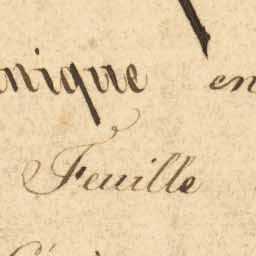 nique en
Feuille